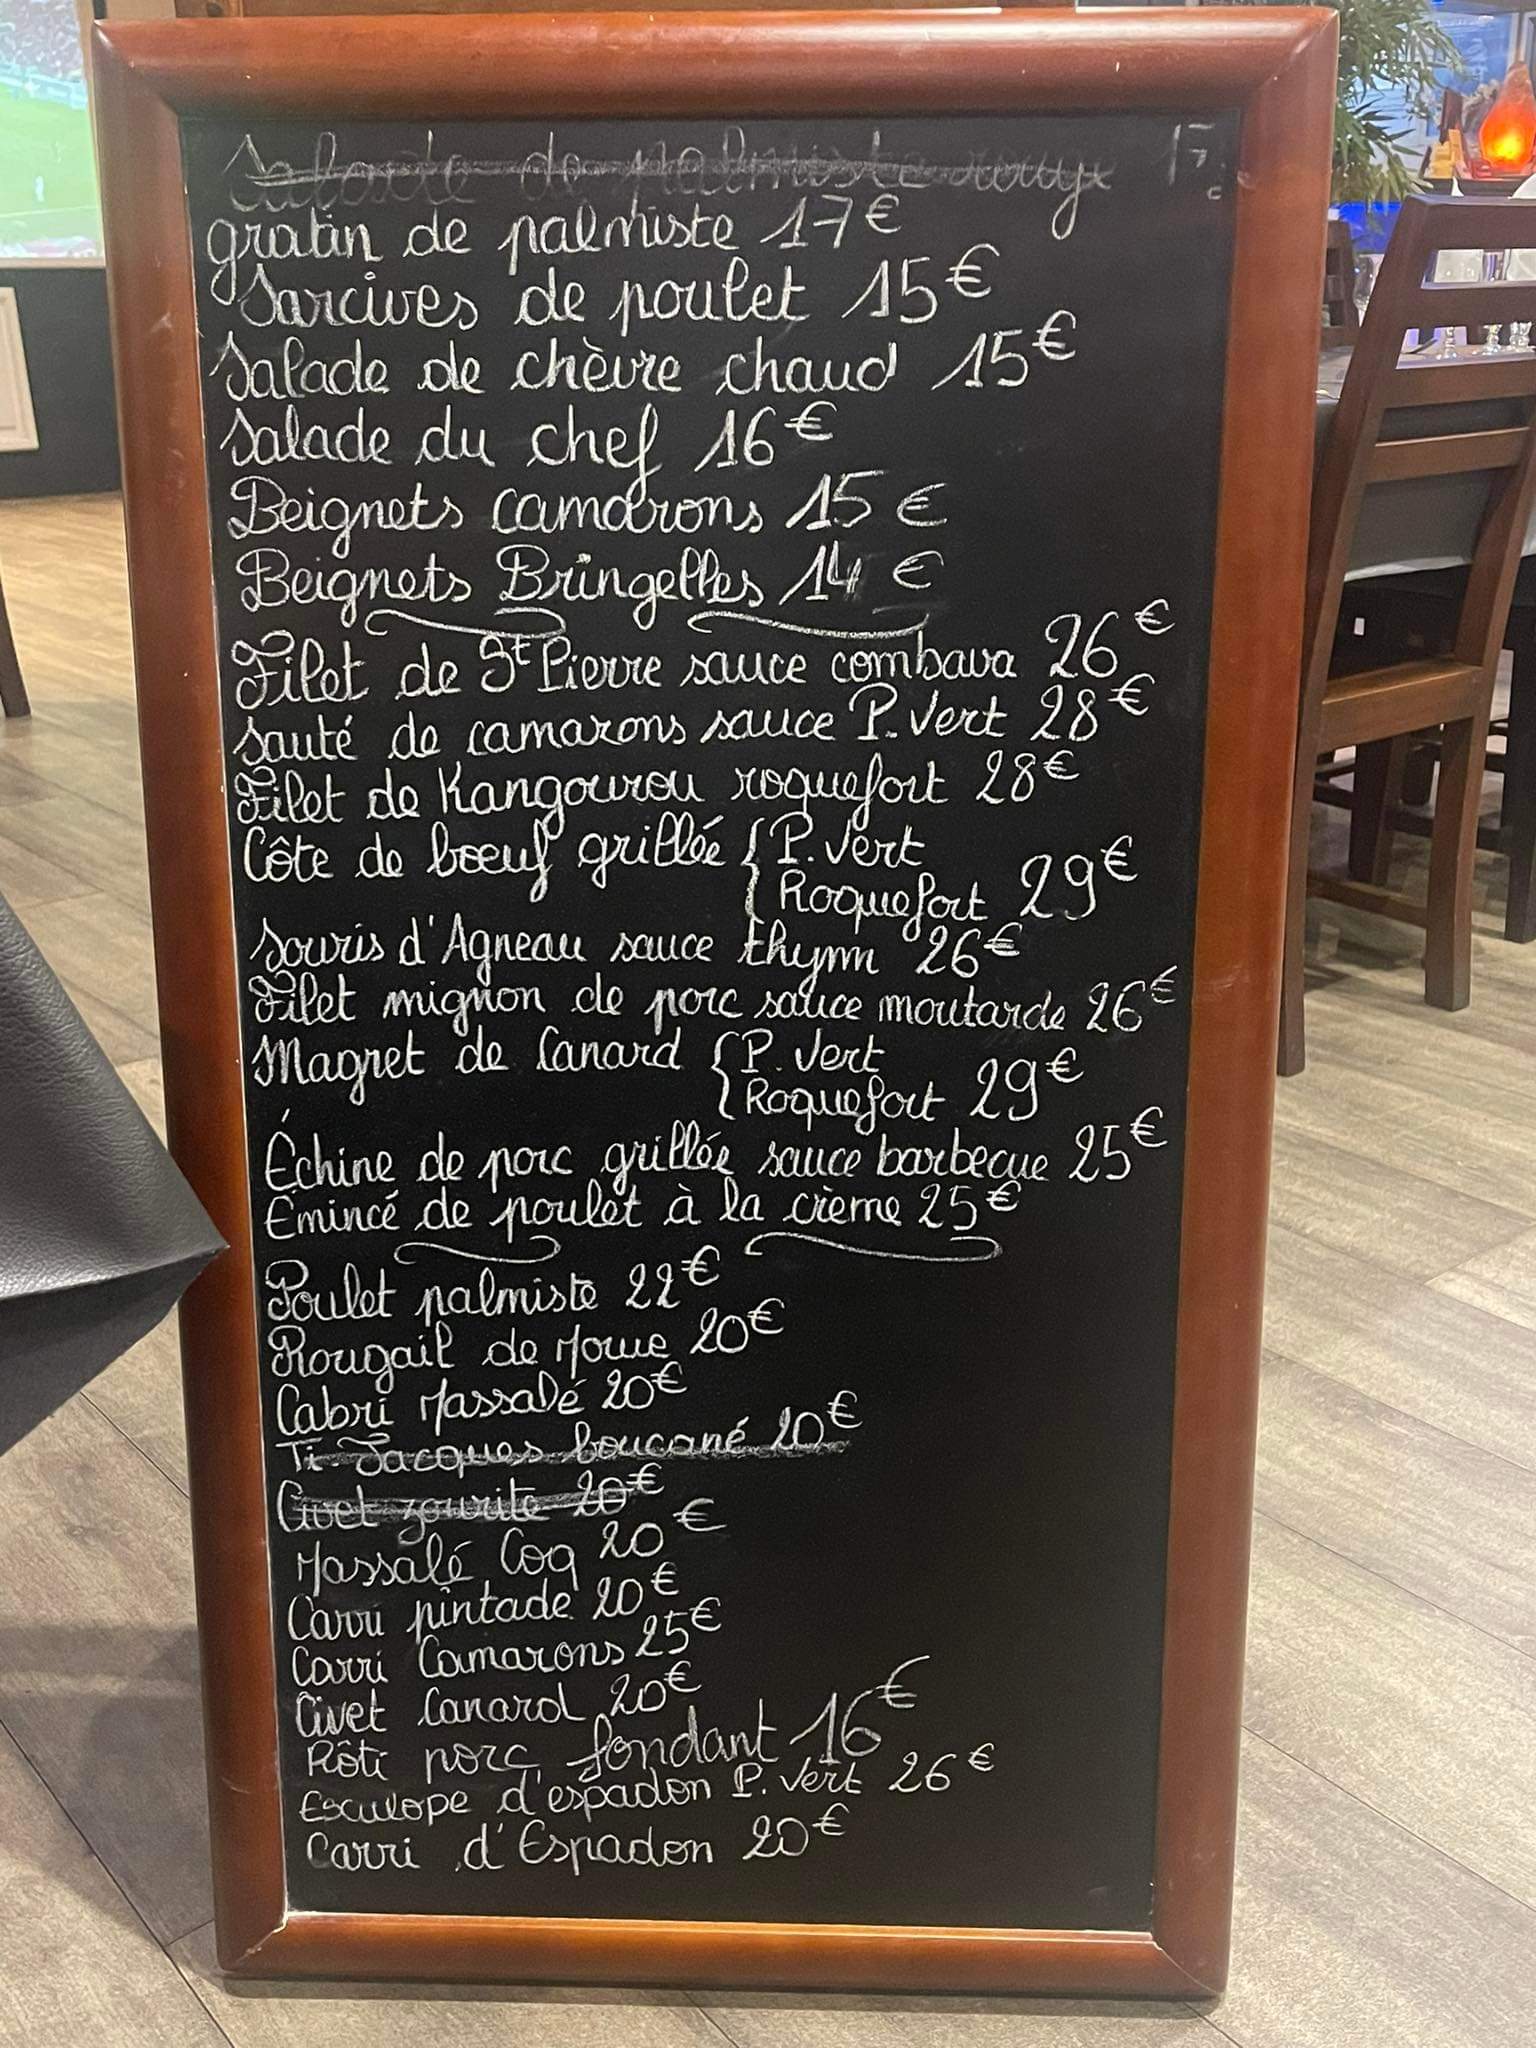 Salade de palmiste rouge 17
gratin de palmiste 17€
Sarcives de poulet 15€
Salade de chèvre chaud 15€
Salade du chef 16€
Beignets camarons 15€
Beignets Bringelles 14€
Filet de St Pierre sauce combava 26€
Sauté de camarons sauce P. Vert 28€
Filet de Kangourou roquefort 28€
Côte de bœuf grillée { P. Vert
Roquefort 29€
Souris d'Agneau sauce thym 26€
Filet mignon de porc sauce moutarde 26€
Magret de Canard { P. Vert
Roquefort 29€
Échine de porc grillée sauce barbecue 25€
Émincé de poulet à la crème 25€
Poulet palmiste 22€
Rougail de Morue 20€
Cabri Massalé 20€
Ti-Jacques boucané 20€
Civet zourite 20€
Massalé Coq 20€
Carri pintade 20€
Carri Camarons 25€
Civet Canard 20€
Rôti porc fondant 16€
Esculope d'espadon P. Vert 26€
Carri d'Espadon 20€